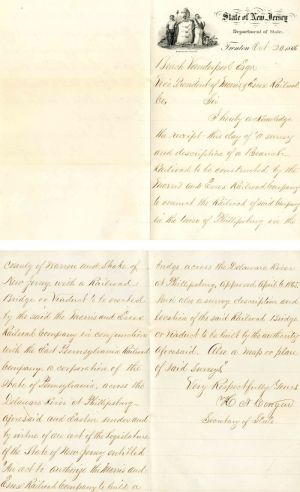 State of New Jersey
Department of State.
Trenton Oct 20 1866
Beach Vanderpool Esqr
Vice President of Morris & Essex Railroad
Co, Sir
I hereby acknowledge
the receipt this day of "a survey
and description of a Branch
Railroad to be constructed by the
Morris and Essex Railroad Company
to connect the Railroad of said Company
in the town of Phillipsburg in the
County of Warren and State of
New Jersey with a Railroad
Bridge or Viaduct to be erected
by the said the Morris and Essex
Railroad Company in conjunction
with the East Pennsylvania Railroad
Company a corporation of the
State of Pennsylvania, across the
Delaware River at Phillipsburg
aforesaid and Easton under and
by virtue of an act of the Legislature
of the State of New Jersey entitled
"An act to authorize the Morris and
Essex Railroad Company to build a
bridge across the Delaware River
at Phillipsburg, approved April 6 1865."
And also a survey description and
location of the said Railroad Bridge
or Viaduct to be built by the authority
aforesaid. Also a map or place
of said Surveys"
Very Respectfully Yours
H N Congar
Secretary of State